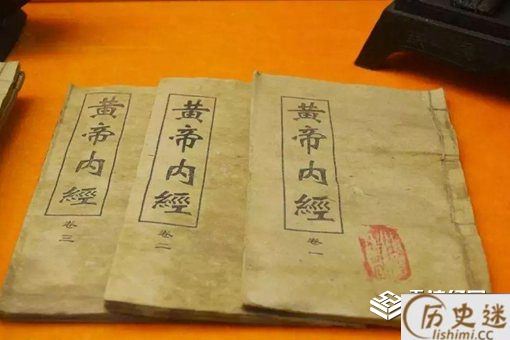 黃帝内經
卷三
黃帝内經
卷二
黃帝内經
卷一
历史迷
lishimi.cc